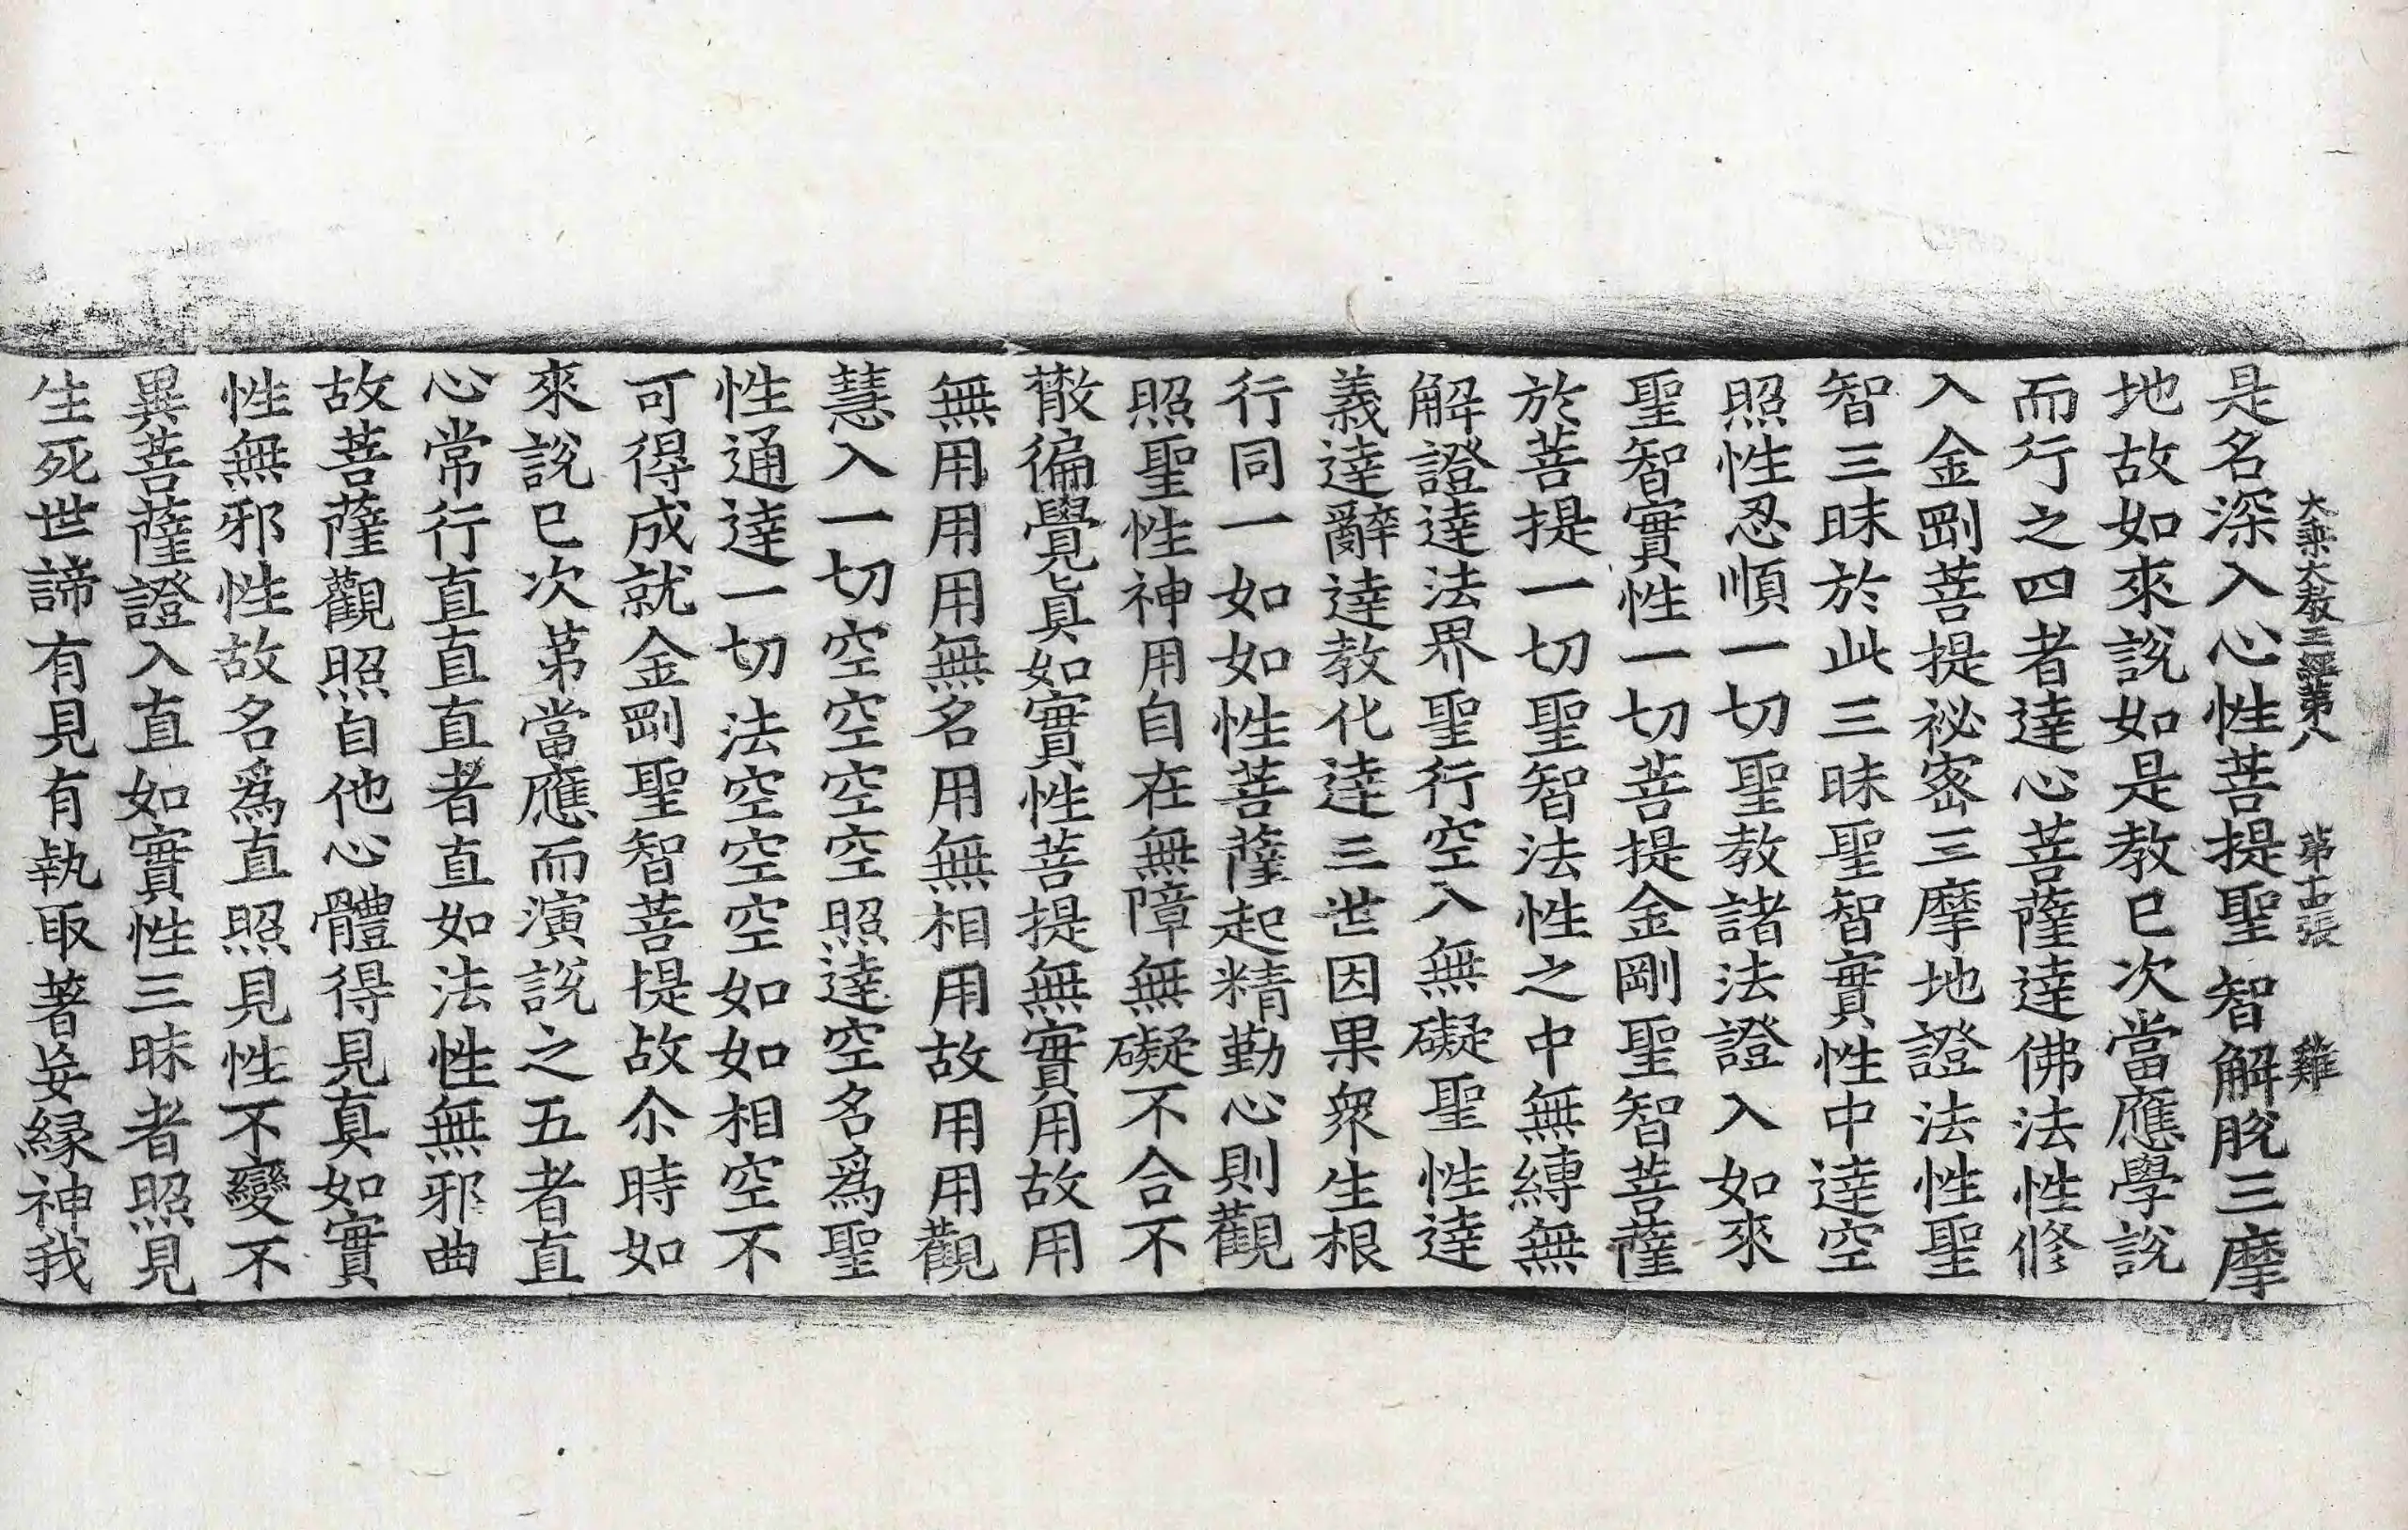 大乘大教王經第八 第十一張 雞
是名深入心性菩提聖智解脫三摩
地故如來說如是教已次當應學說
而行之四者達心菩薩達佛法性修
入金剛菩提祕密三摩地證法性聖
智三昧於此三昧聖智實性中達空
照性忍順一切聖教諸法證入如來
聖智實性一切菩提金剛聖智菩薩
於菩提一切聖智法性之中無縛無
解證達法界聖行空入無礙聖性達
義達辭達教化達三世因果衆生根
行同一如如性菩薩起精勤心則觀
照聖性神用自在無障無礙不合不
散徧覺眞如實性菩提無實用故用
無用用用無名用無相用故用用觀
慧入一切空空空空照達空名爲聖
性通達一切法空空空如如相空不
可得成就金剛聖智菩提故尒時如
來說已次第當應而演說之五者直
心常行直直直者直如法性無邪曲
故菩薩觀照自他心體得見真如實
性無邪性故名爲直照見性不變不
異菩薩證入直如實性三昧者照見
生死世諦有見有執取著妄緣神我